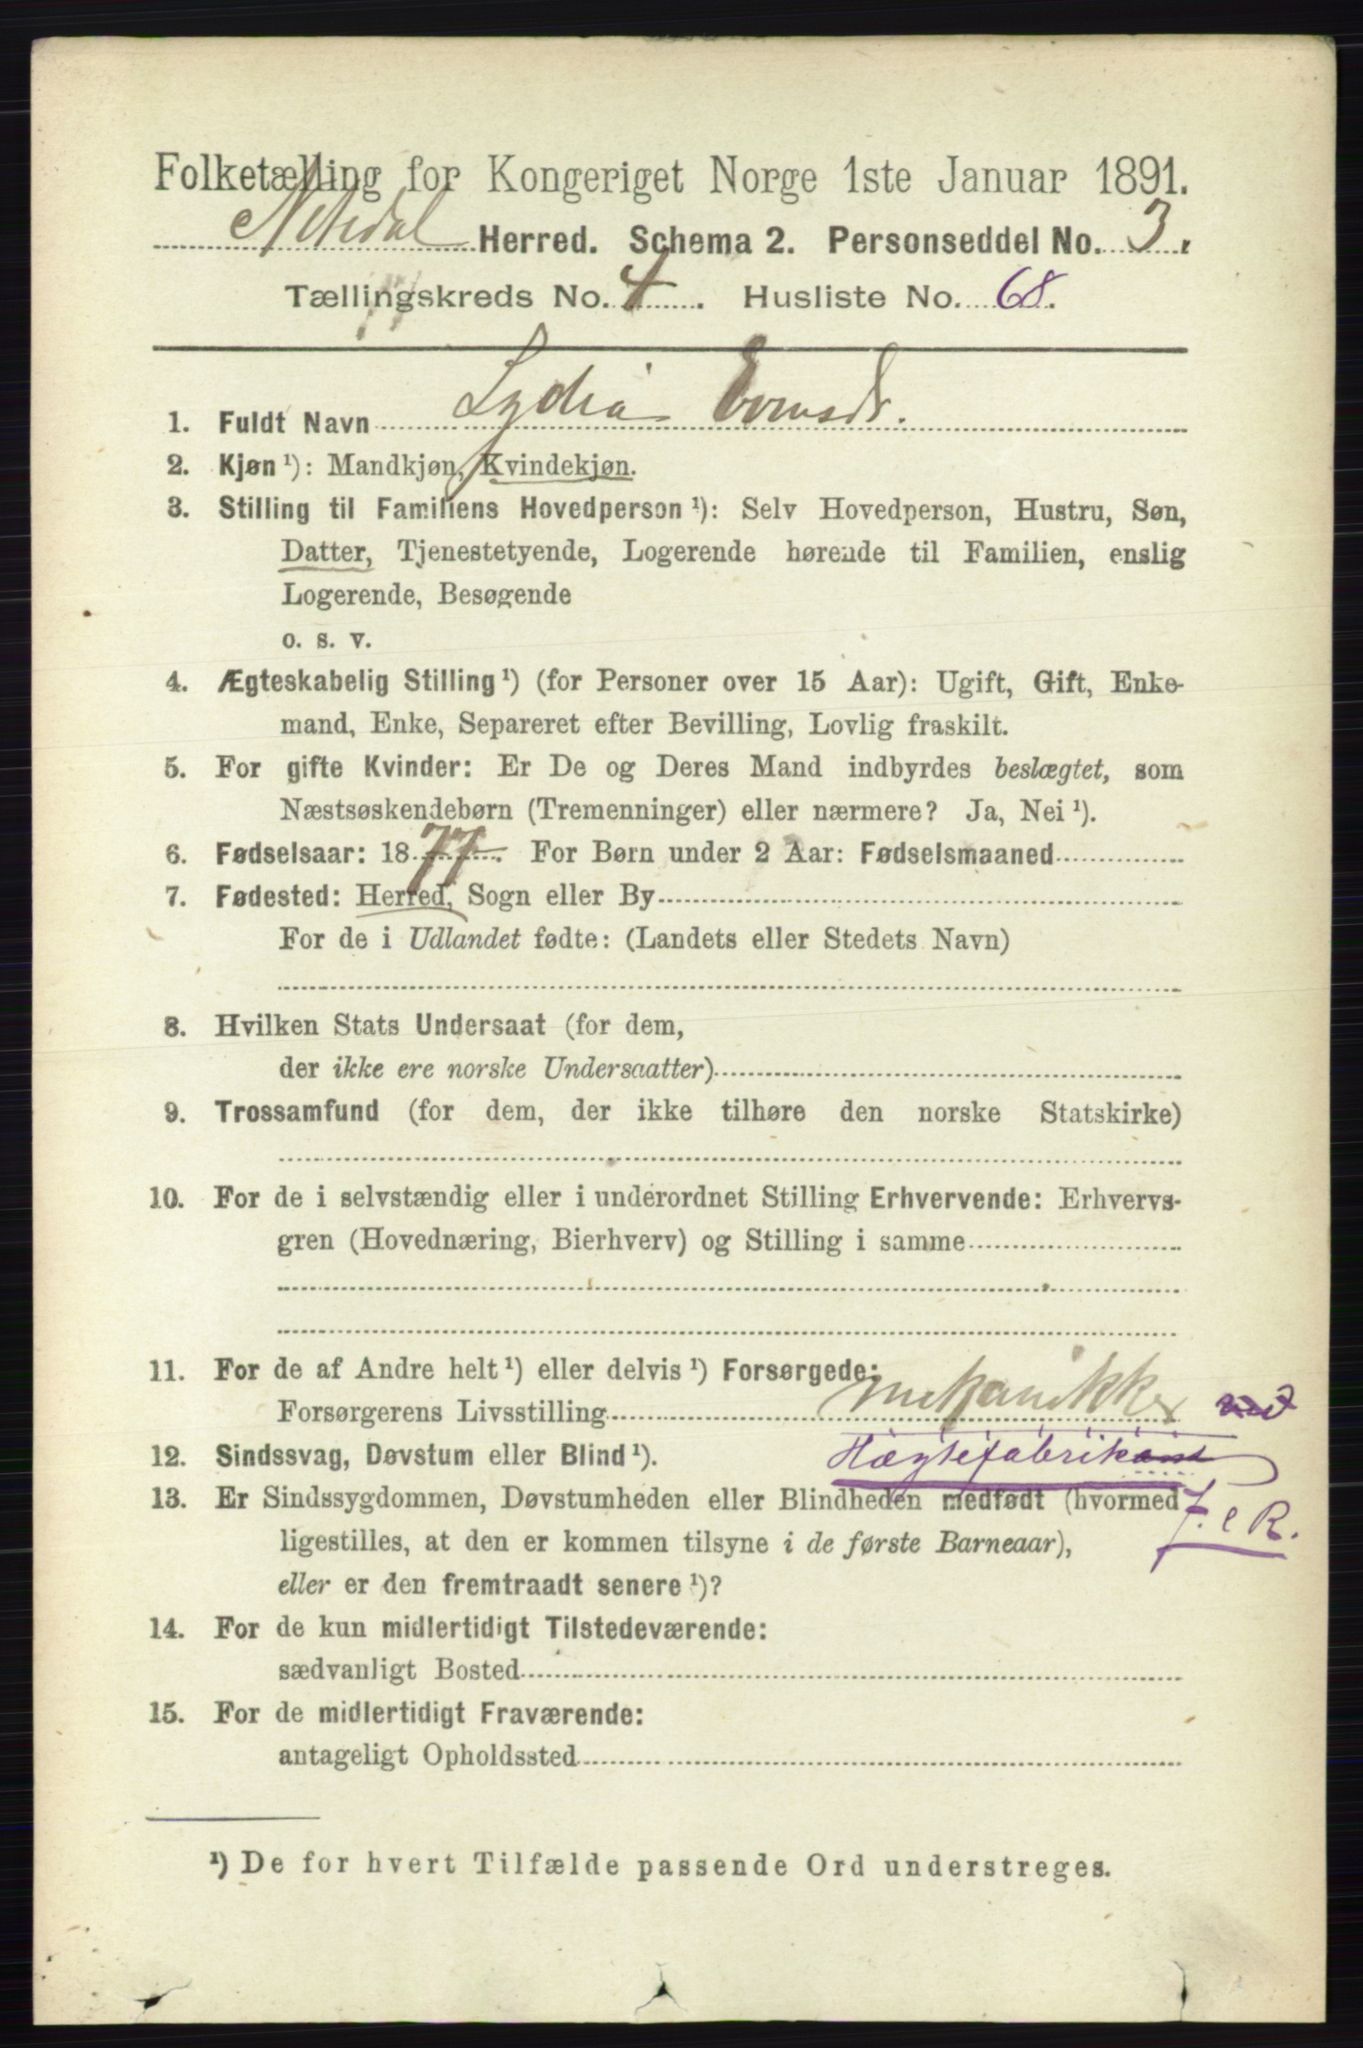 Folketælling for Kongeriget Norge 1ste Januar 1891.
Nitedal Herred. Schema 2. Personseddel No. 3.
Tællingskreds No. 4. Husliste No. 68.
1. Fuldt Navn Lydia
2. Kjøn ¹): Mandkjøn, Kvindekjøn.
3. Stilling til Familiens Hovedperson ¹): Selv Hovedperson, Hustru, Søn,
Datter, Tjenestetyende, Logerende hørende til Familien, enslig
Logerende, Besøgende
o. s. v.
4. Ægteskabelig Stilling ¹) (for Personer over 15 Aar): Ugift, Gift, Enke-
mand, Enke, Separeret efter Bevilling, Lovlig fraskilt.
5. For gifte Kvinder: Er De og Deres Mand indbyrdes beslægtet, som
Næstsøskendebørn (Tremenninger) eller nærmere? Ja, Nei ¹).
6. Fødselsaar: 1877. For Børn under 2 Aar: Fødselsmaaned
7. Fødested: Herred, Sogn eller By
For de i Udlandet fødte: (Landets eller Stedets Navn)
8. Hvilken Stats Undersaat (for dem,
der ikke ere norske Undersaatter)
9. Trossamfund (for dem, der ikke tilhøre den norske Statskirke)
10. For de i selvstændig eller i underordnet Stilling Erhvervende: Erhvervs-
gren (Hovednæring, Bierhverv) og Stilling i samme
11. For de af Andre helt ¹) eller delvis ¹) Forsørgede:
Forsørgerens Livsstilling mekanikker ved
12. Sindssvag, Døvstum eller Blind ¹). Hægtefabrikant
13. Er Sindssygdommen, Døvstumheden eller Blindheden medfødt (hvormed
ligestilles, at den er kommen tilsyne i de første Barneaar),
eller er den fremtraadt senere ¹)?
14. For de kun midlertidigt Tilstedeværende:
sædvanligt Bosted
15. For de midlertidigt Fraværende:
antageligt Opholdssted
¹) De for hvert Tilfælde passende Ord understreges.